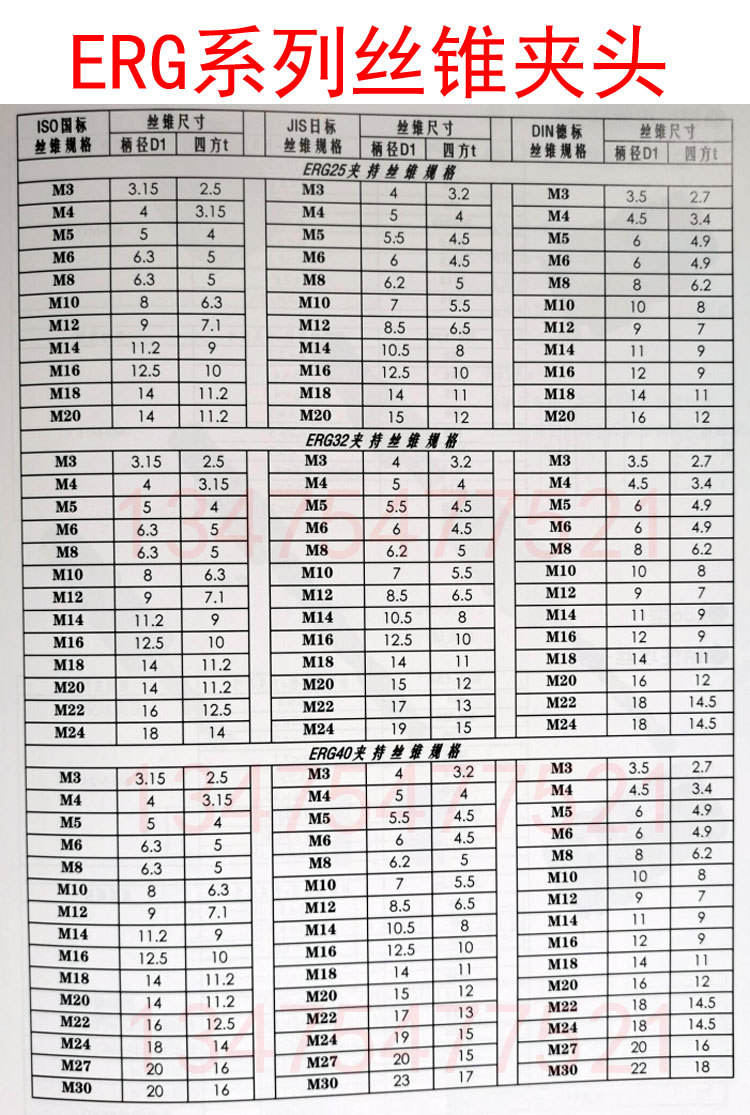 ERG系列丝锥夹头
ISO国标 丝锥规格 丝锥尺寸 柄径D1 四方t JIS日标 丝锥规格 丝锥尺寸 柄径D1 四方t DIN德标 丝锥规格 丝锥尺寸 柄径D1 四方t
ERG25夹持丝锥规格
M3 3.15 2.5 M3 4 3.2 M3 3.5 2.7
M4 4 3.15 M4 5 4 M4 4.5 3.4
M5 5 4 M5 5.5 4.5 M5 6 4.9
M6 6.3 5 M6 6 4.5 M6 6 4.9
M8 6.3 5 M8 6.2 5 M8 8 6.2
M10 8 6.3 M10 7 5.5 M10 10 8
M12 9 7.1 M12 8.5 6.5 M12 9 7
M14 11.2 9 M14 10.5 8 M14 11 9
M16 12.5 10 M16 12.5 10 M16 12 9
M18 14 11.2 M18 14 11 M18 14 11
M20 14 11.2 M20 15 12 M20 16 12
ERG32夹持丝锥规格
M3 3.15 2.5 M3 4 3.2 M3 3.5 2.7
M4 4 3.15 M4 5 4 M4 4.5 3.4
M5 5 4 M5 5.5 4.5 M5 6 4.9
M6 6.3 5 M6 6 4.5 M6 6 4.9
M8 6.3 5 M8 6.2 5 M8 8 6.2
13475477521
M10 8 6.3 M10 7 5.5 M10 10 8
M12 9 7.1 M12 8.5 6.5 M12 9 7
M14 11.2 9 M14 10.5 8 M14 11 9
M16 12.5 10 M16 12.5 10 M16 12 9
M18 14 11.2 M18 14 11 M18 14 11
M20 14 11.2 M20 15 12 M20 16 12
M22 16 12.5 M22 17 13 M22 18 14.5
M24 18 14 M24 19 15 M24 18 14.5
ERG40夹持丝锥规格
M3 3.15 2.5 M3 4 3.2 M3 3.5 2.7
M4 4 3.15 M4 5 4 M4 4.5 3.4
13475477521
M5 5 4 M5 5.5 4.5 M5 6 4.9
M6 6.3 5 M6 6 4.5 M6 6 4.9
M8 6.3 5 M8 6.2 5 M8 8 6.2
M10 8 6.3 M10 7 5.5 M10 10 8
M12 9 7.1 M12 8.5 6.5 M12 9 7
M14 11.2 9 M14 10.5 8 M14 11 9
M16 12.5 10 M16 12.5 10 M16 12 9
M18 14 11.2 M18 14 11 M18 14 11
M20 14 11.2 M20 15 12 M20 16 12
M22 16 12.5 M22 17 13 M22 18 14.5
M24 18 14 M24 19 15 M24 18 14.5
13475477521
M27 20 16 M27 20 15 M27 20 16
M30 20 16 M30 23 17 M30 22 18